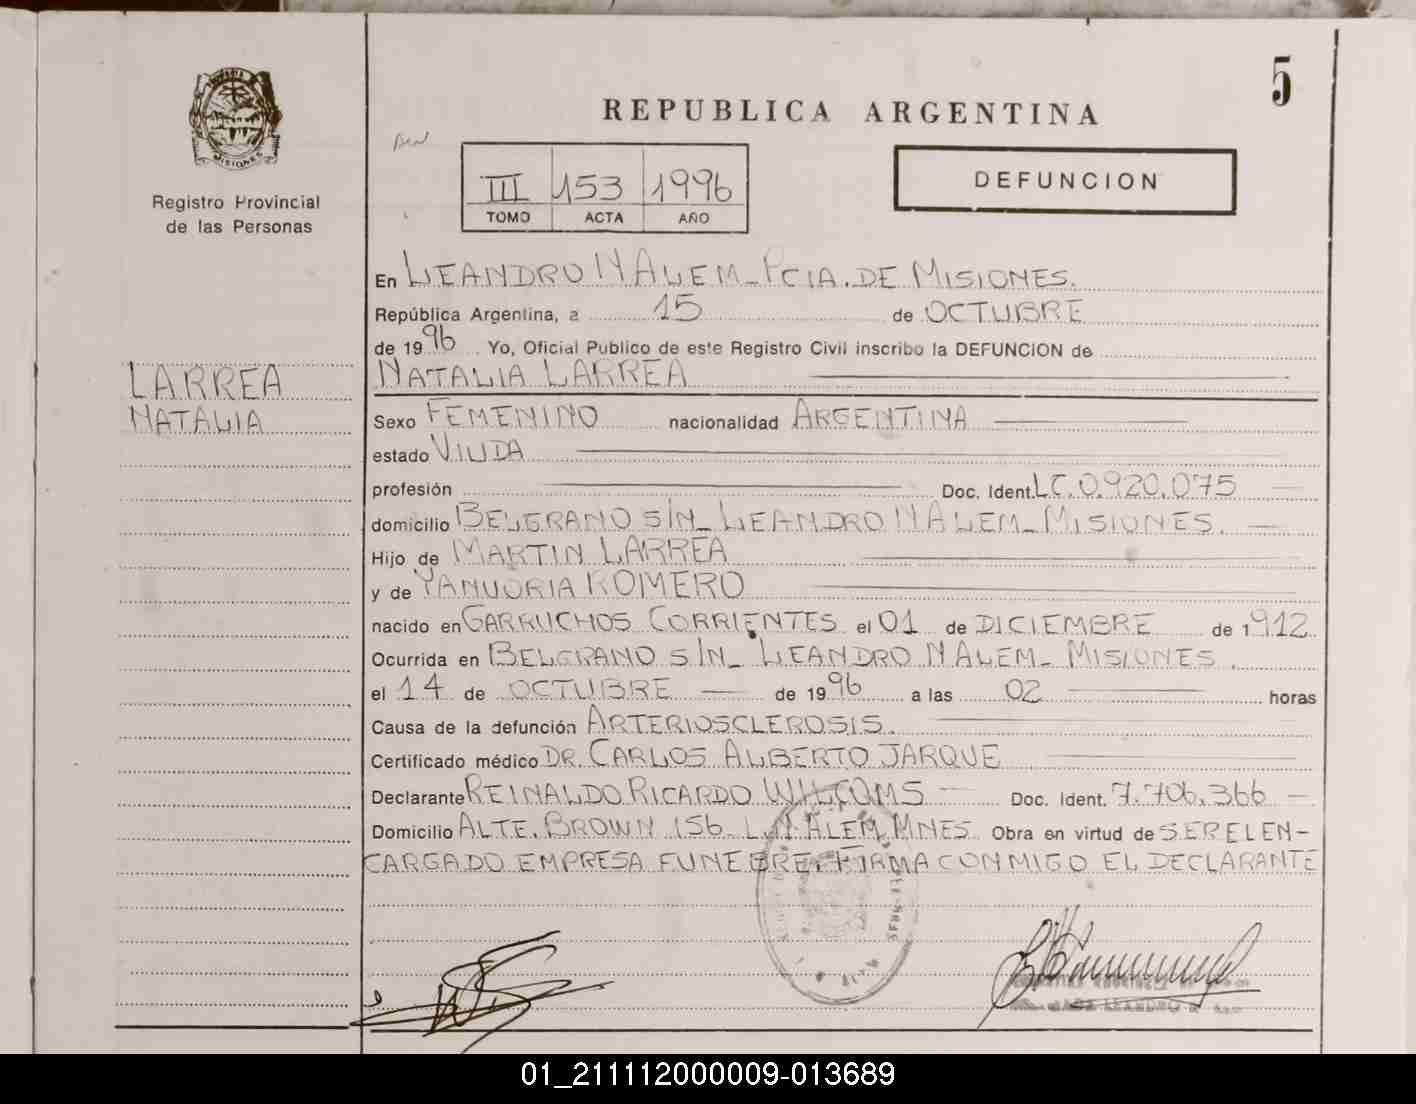 5
REPUBLICA ARGENTINA
MISIONES
Registro Provincial
de las Personas
III 153 1996
TOMO ACTA AÑO
DEFUNCION
En LEANDRO N ALEM - PCIA. DE MISIONES.
República Argentina, a 15 de OCTUBRE
de 1996. Yo, Oficial Publico de este Registro Civil inscribo la DEFUNCION de
NATALIA LARREA
LARREA
NATALIA
Sexo FEMENINO nacionalidad ARGENTINA
estado VIUDA
profesión Doc. Ident. LC. 0.920.075
domicilio BELGRANO S/N - LEANDRO N ALEM - MISIONES.
Hijo de MARTIN LARREA
y de ROMERO
nacido en GARRUCHOS CORRIENTES el 01 de DICIEMBRE de 1912.
Ocurrida en BELGRANO S/N - LEANDRO N ALEM - MISIONES.
el 14 de OCTUBRE de 1996 a las 02 horas
Causa de la defunción ARTERIOSCLEROSIS.
Certificado médico DR. CARLOS ALBERTO JARQUE
Declarante REINALDO RICARDO Doc. Ident. 7.706.366
Domicilio ALTE. BROWN 156 L.N. ALEM MNES Obra en virtud de SER EL EN-
CARGADO EMPRESA FUNEBRE. FIRMA CONMIGO EL DECLARANTE
01_211112000009-013689